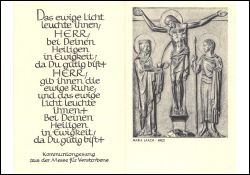 Das ewige Licht
leuchte ihnen,
HERR,
bei Deinen
Heiligen
in Ewigkeit,
da Du gütig bist+
HERR,
gib ihnen die
ewige Ruhe,
und das ewige
Licht leuchte
ihnen+
Bei Deinen
Heiligen
in Ewigkeit,
da Du gütig bist+
Kommuniongesang
aus der Messe für Verstorbene
MARIA LAACH